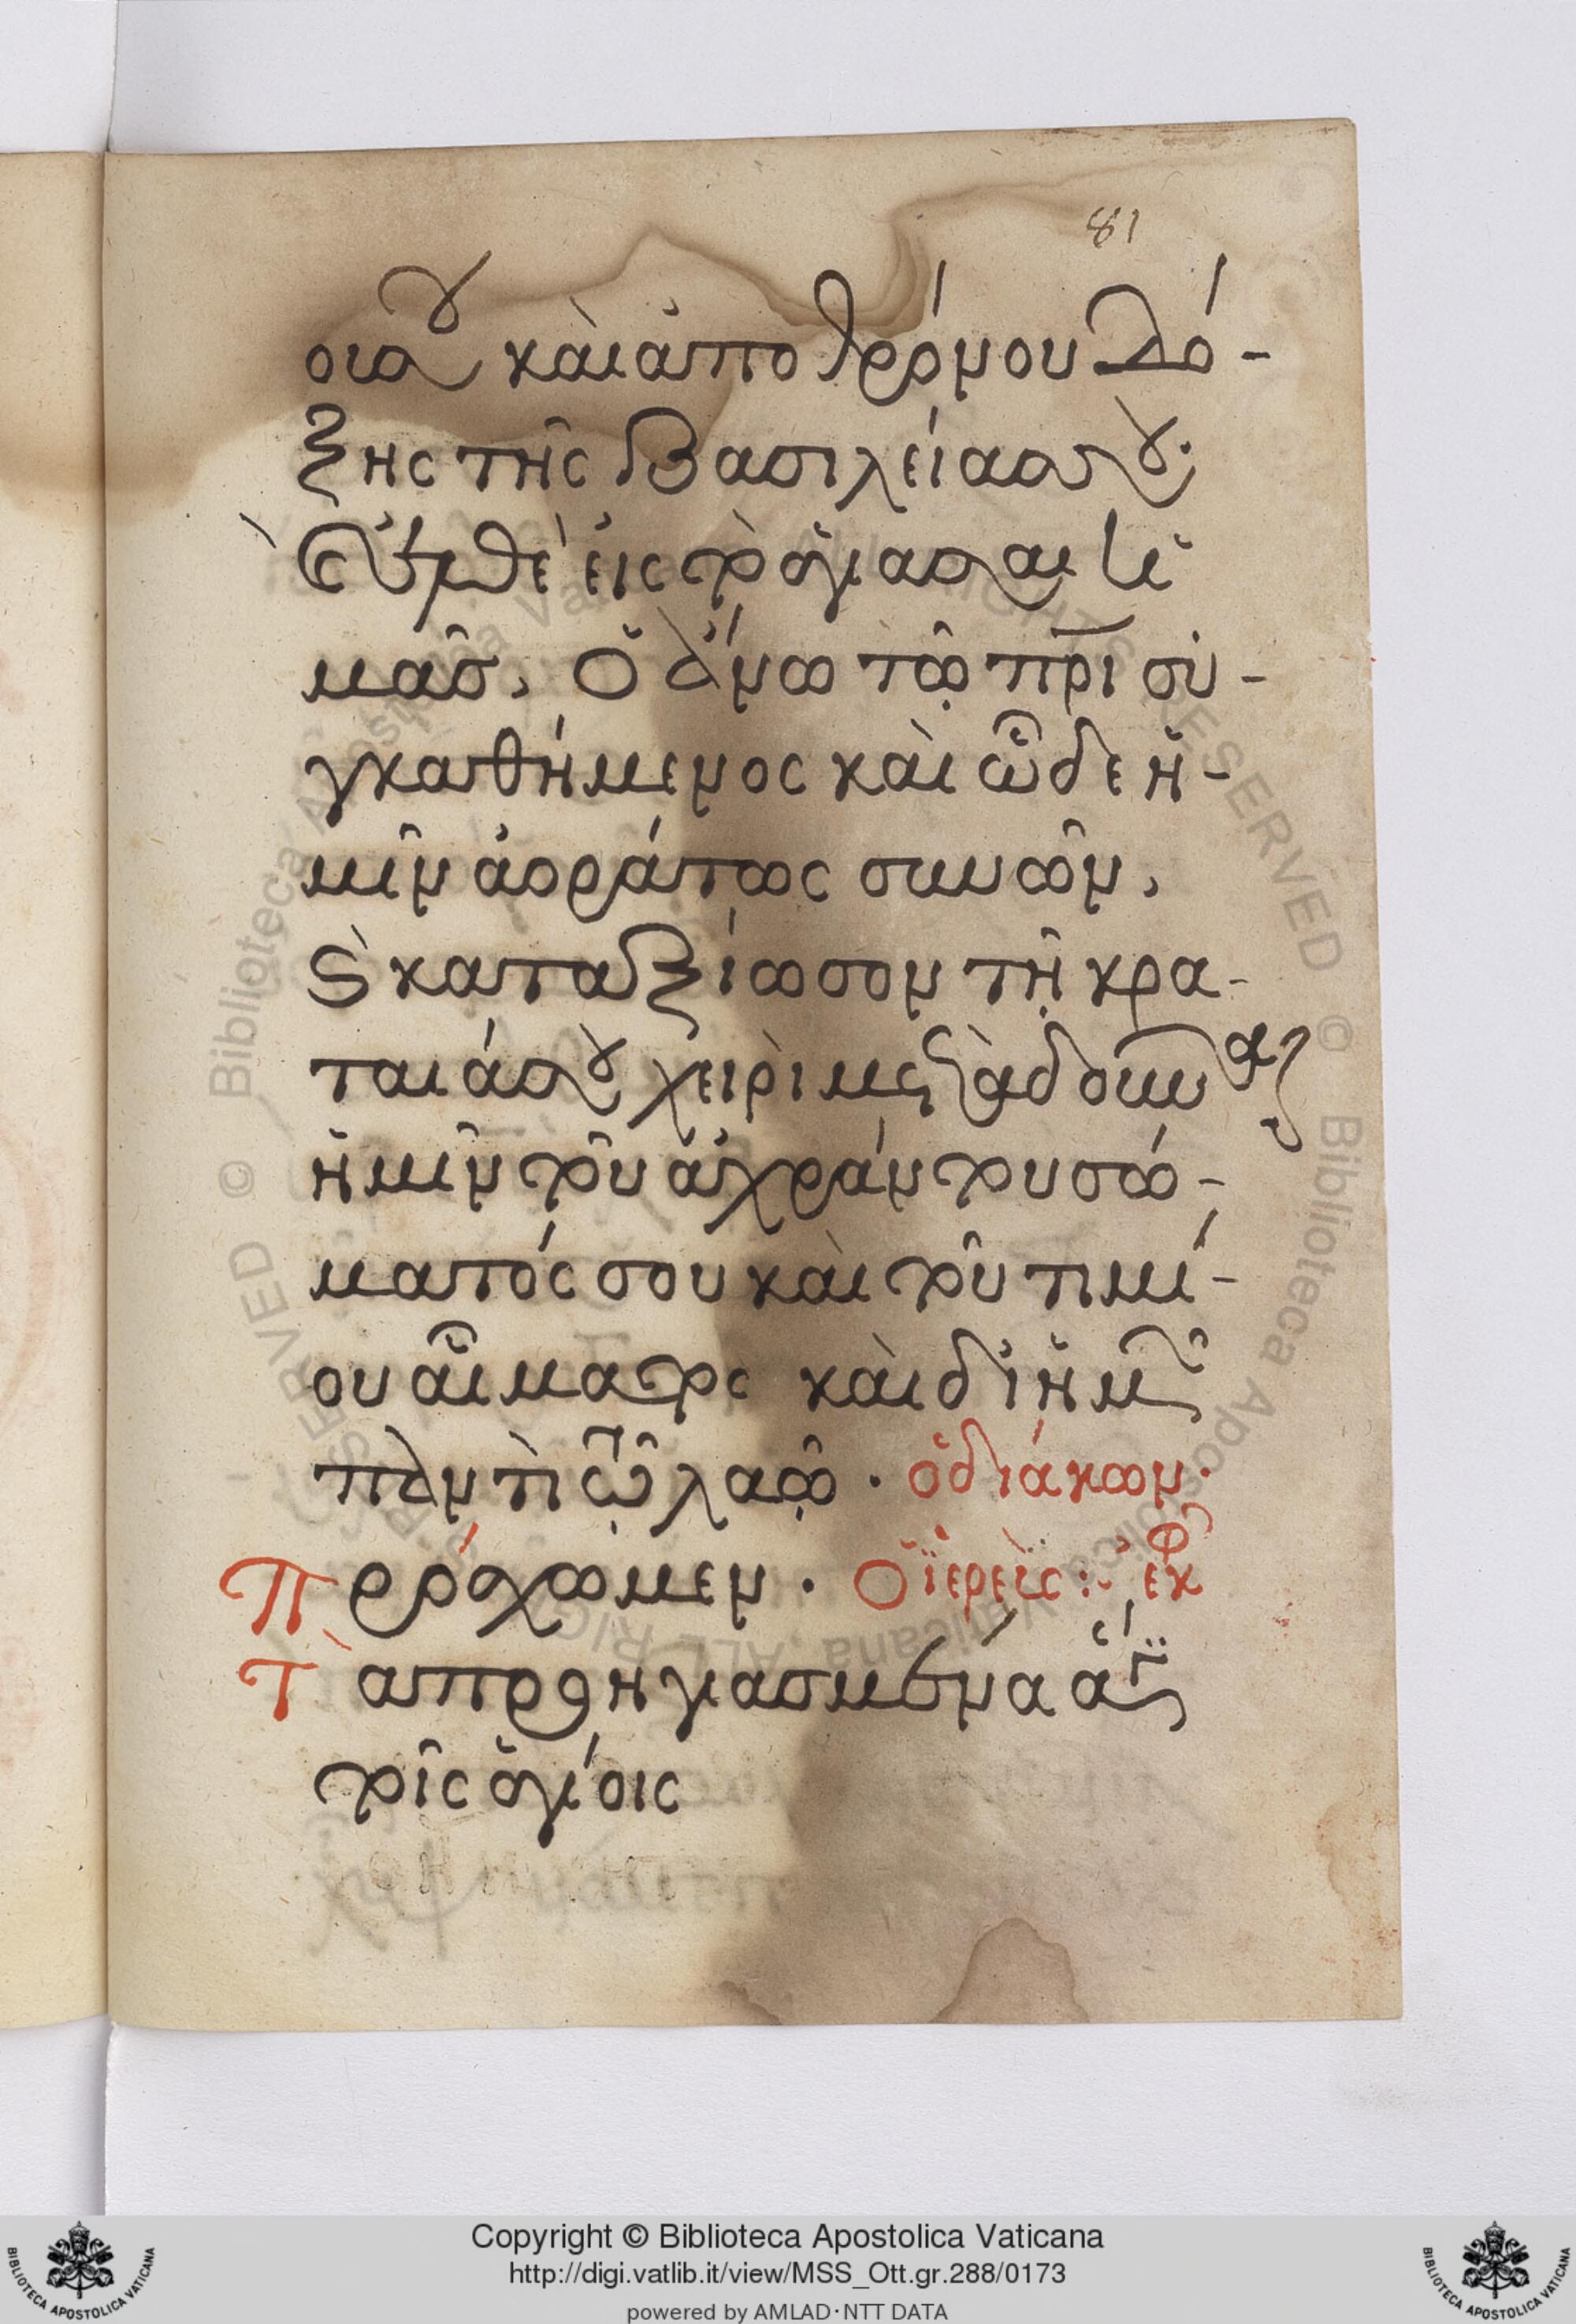 81
οισου καὶ ἀπο θρόνου δό-
ξης τῆς βασιλείας σου·
καὶ ἐλθὲ εἰς τὸ ἁγιάσαι ἡ
μᾶς, ὁ ἄνω τῷ πρι συ-
γκαθήμενος καὶ ὧδε ἡ-
μῖν ἀοράτως συνών,
καὶ καταξίωσον τῇ κρα-
ταιᾷ σου χειρὶ μεταδοῦναι
ἡμῖν τοῦ ἀχράντου σώ-
ματός σου καὶ τοῦ τιμί-
ου αἵματος καὶ δι ἡμῶν
παντὶ τῷ λαῷ· ὁ διάκων·
Πρόσχωμεν· Ὁ ἱερεὺς: ἐκφ
Τὰ προηγιασμένα ἅγια
τοῖς ἁγίοις
Copyright © Biblioteca Apostolica Vaticana
http://digi.vatlib.it/view/MSS_Ott.gr.288/0173
powered by AMLAD·NTT DATA
BIBLIOTECA APOSTOLICA VATICANA
BIBLIOTECA APOSTOLICA VATICANA